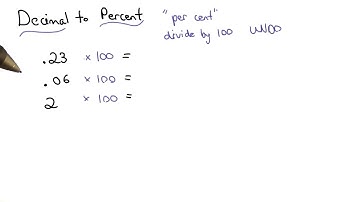 Decimal to Percent
"per cent"
divide by 100 UNDO
.23 × 100 =
.06 × 100 =
2 × 100 =